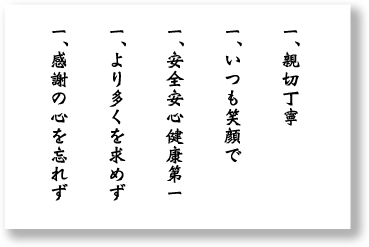 一、親切丁寧
一、いつも笑顔で
一、安全安心健康第一
一、より多くを求めず
一、感謝の心を忘れず